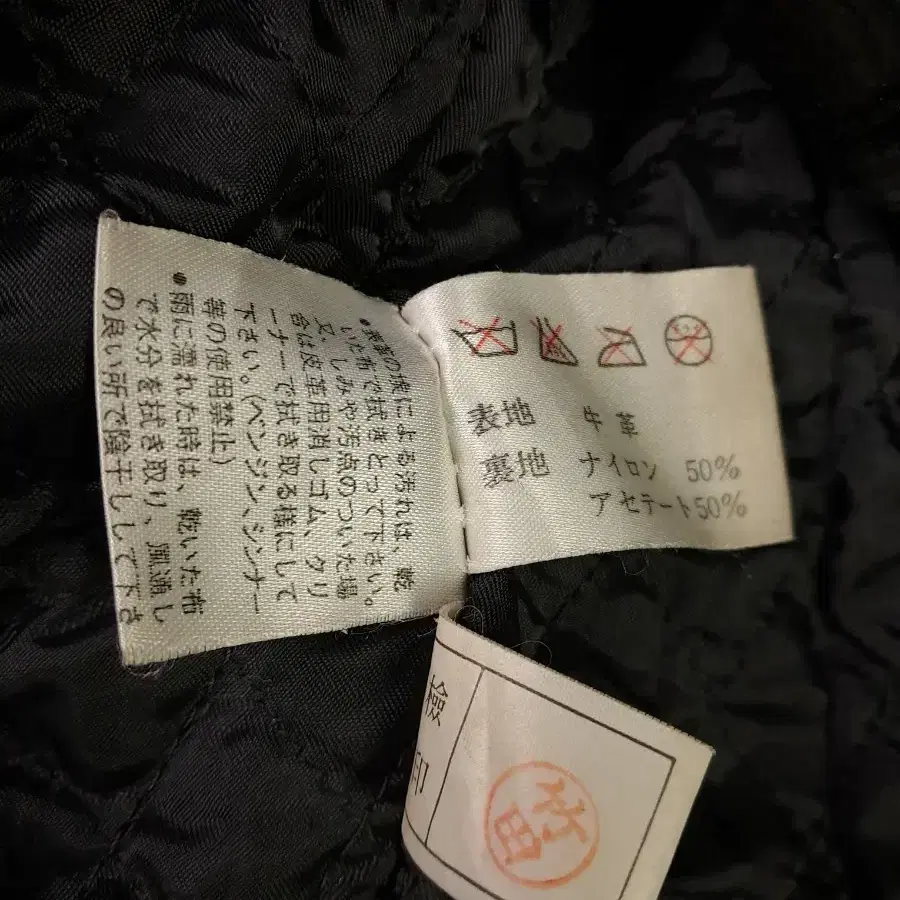 ●による汚れは、乾
いた布で拭きとって下さい。
又、しみや汚点のついた場
合は皮革用消しゴム、クリ
ーナーで拭き取る様にして
下さい。(ベンジン、シンナー
等の使用禁止)
●雨に濡れた時は、乾いた布
で水分を拭き取り、風通し
の良い所で陰干しして下さ
表地 牛革
裏地 ナイロン 50%
アセテート50%
檢印
竹田